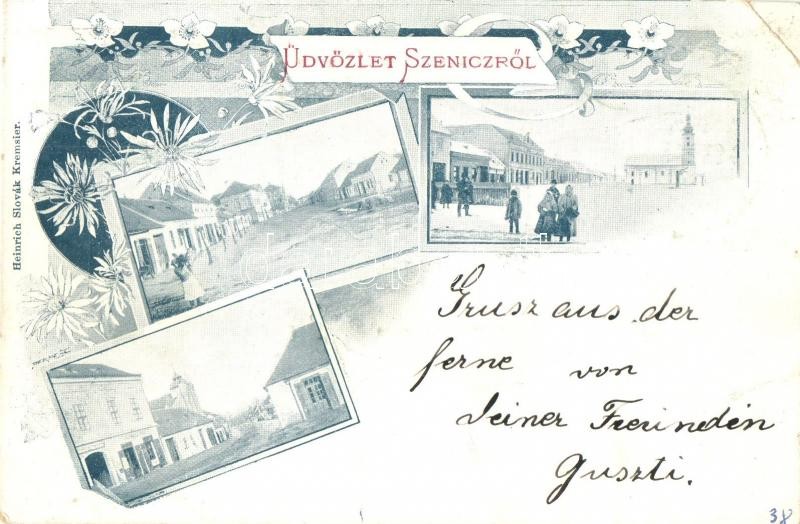 ÜDVÖZLET SZENICZRŐL
Heinrich Slovák Kremsier.
Grusz aus der
ferne von
Deiner Freindin
Guszti.
38